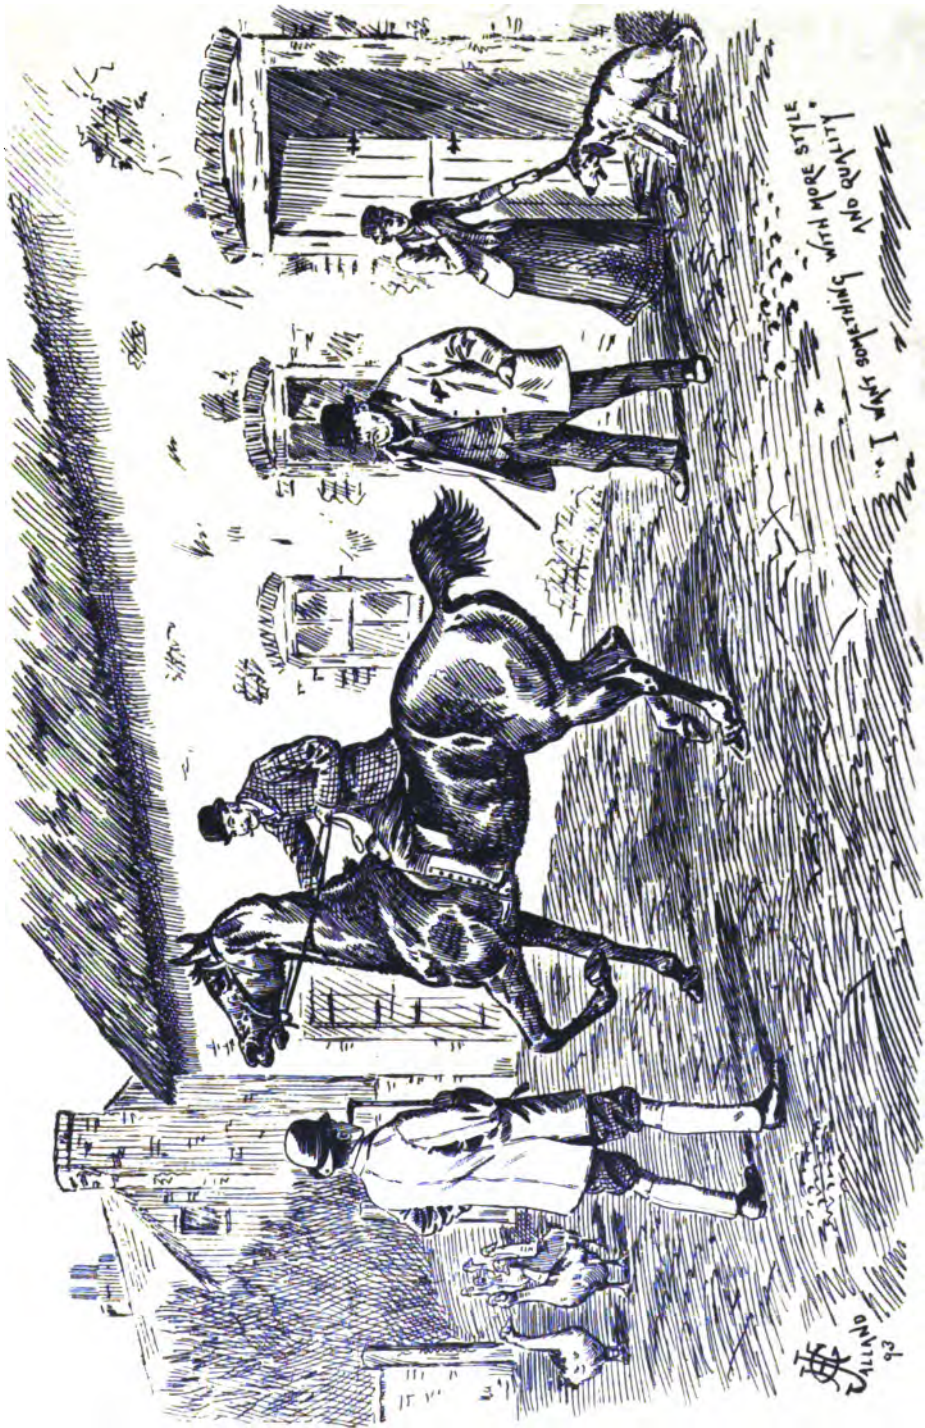 "I WANT SOMETHING WITH MORE STYLE
AND QUALITY."
GH
JALLAND
93